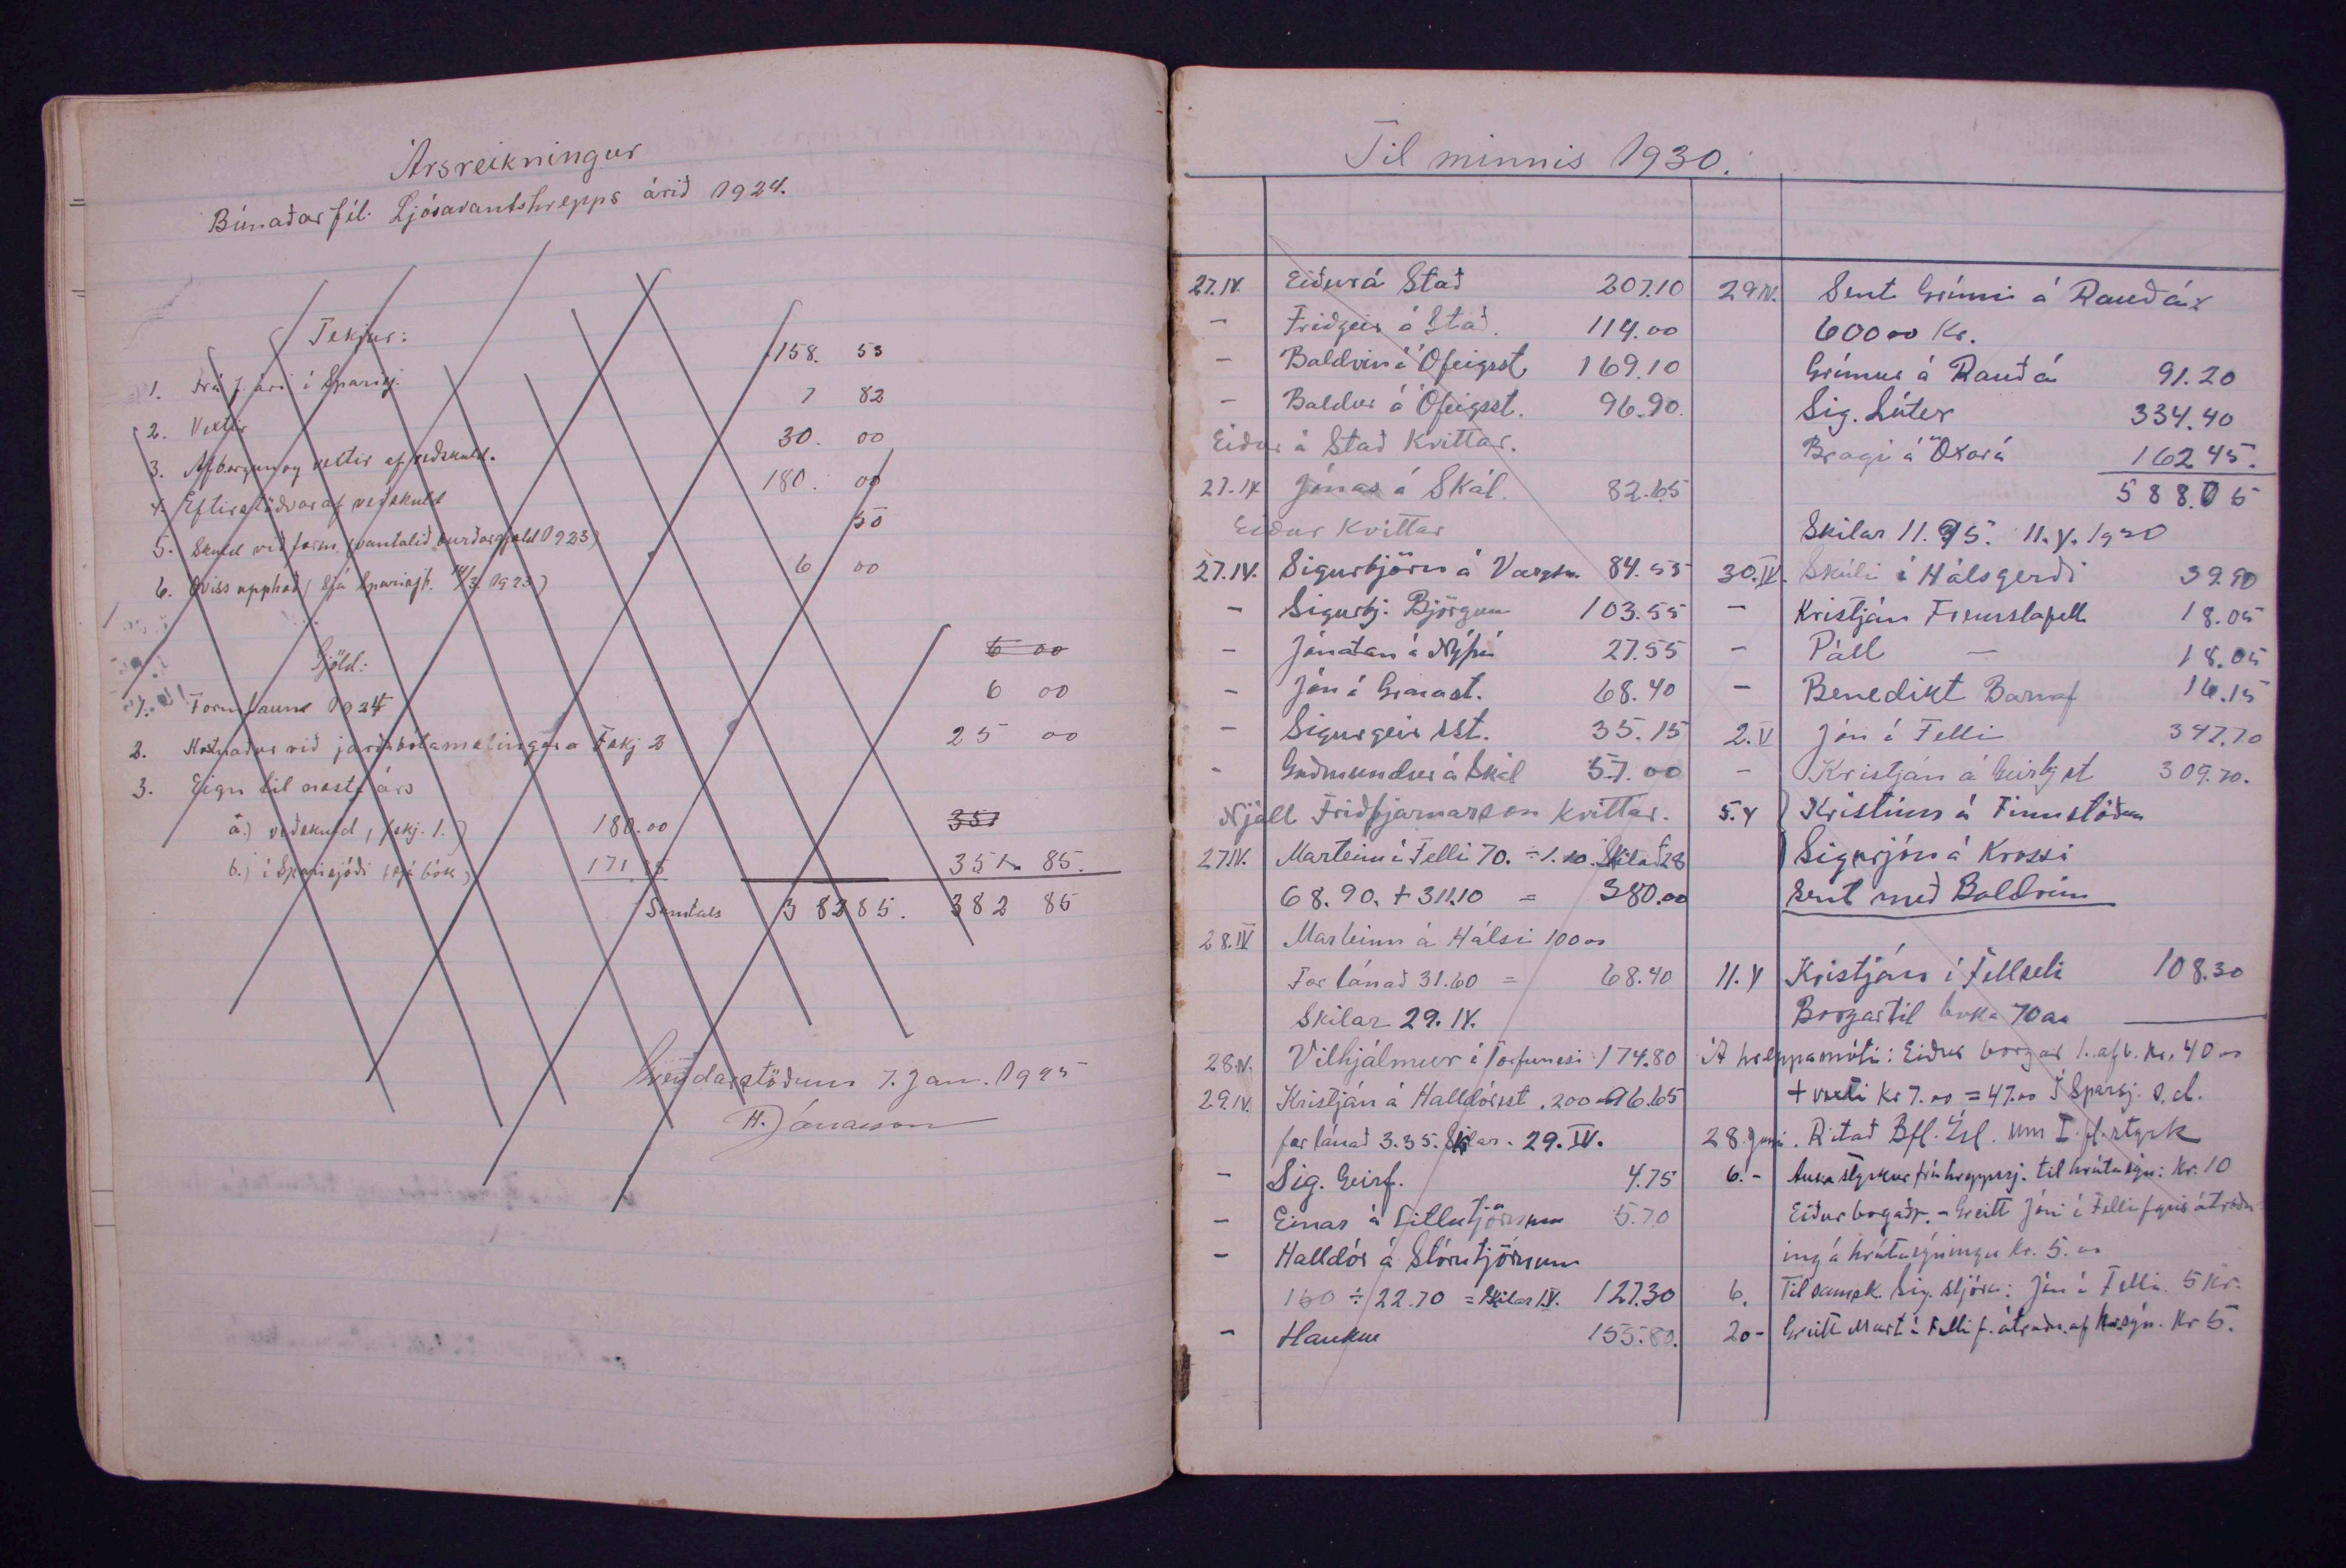 Ársreikningur
Búnaðarfél. Ljósavantshrepps árið 1924.
Tekjur:
1. Frá f. ári í Sparisj. 158. 53
2. Vextir 7 82
3. Afborgun og vextir af veðskuld. 30. 00
4. Eftirstöðvar af veðskuld 180. 00
5. Skuld við form. (vantalið burðargjald 1923) 50
6. Óviss upphæð (sjá Sparisjb. 14/3. 1923) 6 00
Gjöld:
6 00
1. Form.laun 1924 6 00
2. Kostnaður við jarðabótamælingar a Fskj 2 25 00
3. Eign til næsta árs
a.) veðskuld, (fskj. 1.) 180.00 351
b.) í Sparisjóði (sjá bók) 171.85 351 85.
Samtals 38285. 382 85
7. Jan. 1925
H. Jónasson
Til minnis 1930.
27.IV. Eiður á Stað 207.10
– Friðgeir á Stað. 114.00
– Baldvin á Ófeigsst. 169.10
– Baldur á Ófeigsst. 96.90.
Eiður á Stað Kvittar.
27.IV Jónas á Skál. 82.65
Eiður Kvittar
27.IV. Sigurbjörn á 84.55
– Sigurbj. Björgum 103.55
– Jónatan á Nýpá 27.55
– Jón í Granast. 68.40
– Sigurgeir sst. 35.15
– Guðmundur á Skál 57.00
Njáll Friðbjarnarson Kvittar.
27IV. Marteinn í Felli 70. ÷ 1.10. Skilað 28
68.90. + 311.10 = 380.00
28.IV Marteinn á Hálsi 100 00
Fær lánað 31.60 = 68.40
Skilar 29. IV.
28.IV. Vilhjálmur í Torfunesi 174.80
29.IV. Kristján á Halldórsst. 200 96.65
fær lánað 3.35. Skilar. 29. IV.
– Sig. Geirf. 4.75
– Einar á Litlutjörnum 5.70
– Halldór á Stórutjörnum
150 ÷ 22.70 = Skilar 127.30
– Haukur 155.80.
29 IV. Sent Grími á Rauðá
600 00 Kr.
Grímur á Rauðá 91.20
Sig. Lúter 334.40
Bragi á Öxará 162 45.
588.05
Skilar 11.95. 11. V. 1930
30.IV. Skúli í Hálsgerði 39.90
– Kristján Fremstafell 18.05
– Páll — 18.05
– Benedikt Barnaf 16.15
2.V Jón í Felli 347.70
– Kristján á Geirbjst 309.70.
5.V Kristinn á Finnstöðum
Sigurjón á Krossi
Sent með Baldvin
11.V Kristján í Fellseli 108.30
Borgar til baka 70 aa
Á hreppamóti: Eiður borgar 1. afb. kr. 40 00
+ vexti kr 7.00 = 47.00 Í Sparsj. s.d.
28 Júní. Ritað Bfl. Ísl. um I. fl. styrk
6. – Aukastyrkur frá hreppssj. til hrútasýn: Kr. 10
Eiður borgaðr. – Greitt Jóni í Felli fyrir átroðn-
ing á hrútasýningu kr. 5. 00
6. Til samsk. Sig. stjörn: Jón í Felli. 5 Kr.
20 – Greitt Mart. í Felli f. átroðn. af hr.sýn. Kr 5.